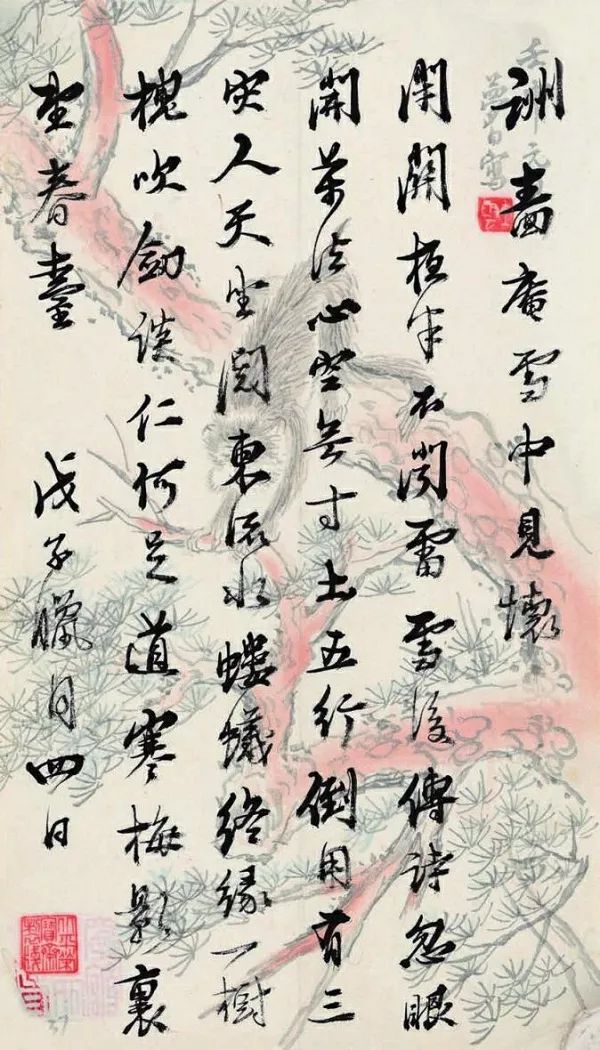 詶嗇庵雪中見懷
閉關 不聞雷雪後傳詩忽眼
開萬法心空無寸土五行倒用有三
災人天坐閱東流水螻蟻終緣一樹
槐吹劍談仁何足道寒梅影裏
望春臺 戊子臘月四日